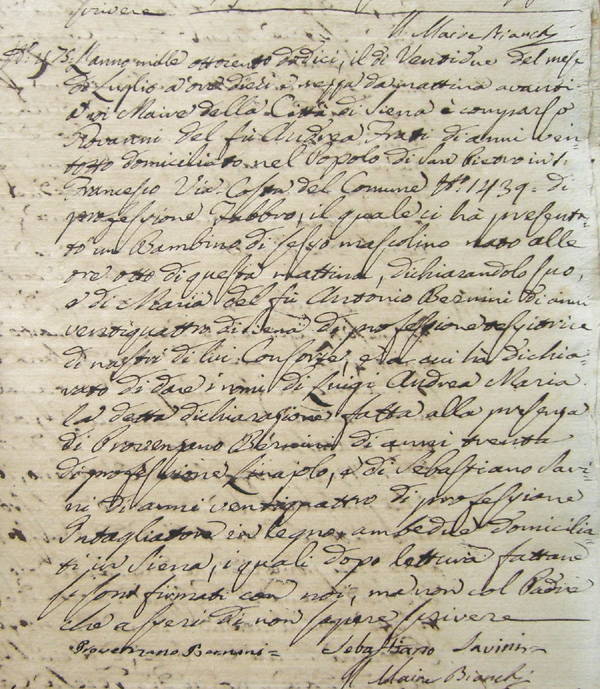 scrivere
Il Maire Bianchi
N.° 475. L'anno mille ottocento dodici, il dì Ventidue del mese
di Luglio a ore dieci e mezza da mattina avanti
a vi Maire della Città di Siena è comparso
Giovanni del fù Andrea Frati di anni ven-
totto domiciliato nel Popolo di San Pietro in S.
Francesco Via Costa del Comune N.° 1439. di
professione Fabbro, il quale ci hà presenta-
to un Bambino di sesso mascolino nato alle
ore otto di questa mattina, dichiarandolo suo,
e di Maria del fù Antonio Bernini di anni
ventiquattro di Siena di professione tessitrice
di nastri di lui Consorte, e a cui hà dichia-
rato di dare i nomi di Luigi Andrea Maria.
la detta dichiarazione fatta alla presenza
di Provenzano Bernini di anni trenta
di professione Linajolo, e di Sebastiano Savi-
ni di anni ventiquattro di professione
Intagliatore in legno, ambedue domicilia-
ti in Siena, i quali dopo lettura fattane
si sono firmati con noi, ma non col Padre
che asserì di non sapere scrivere
Provenzano Bernini = Sebastiano Savini =
Il Maire Bianchi